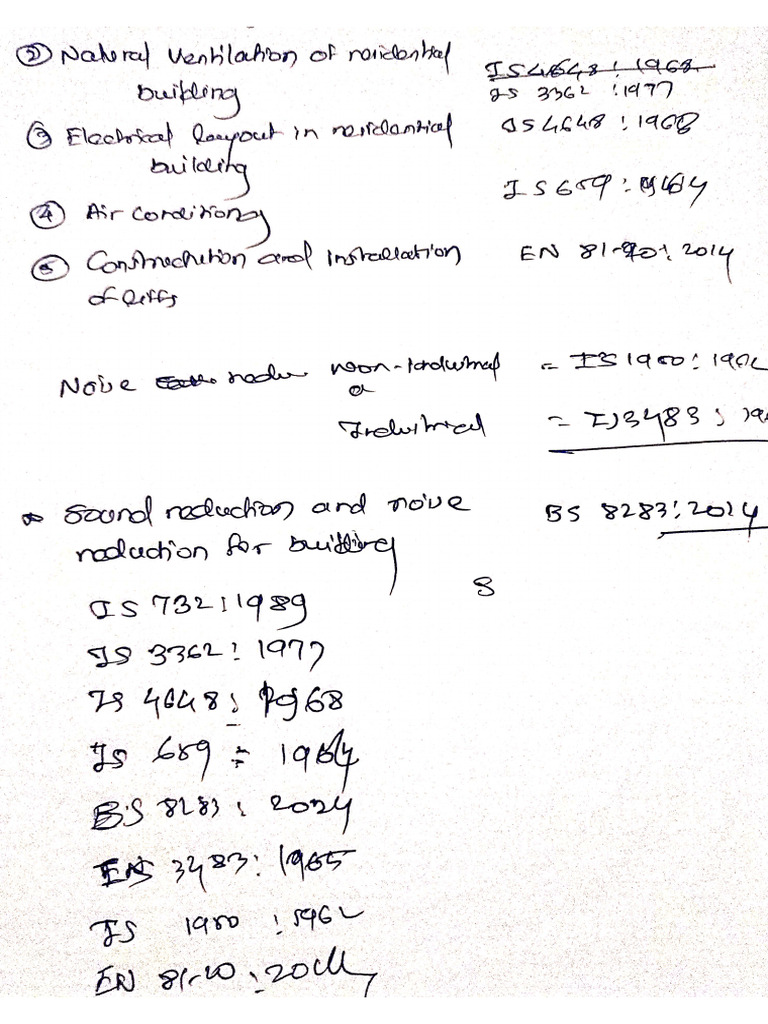 ② Natural Ventilation of residential IS 4648 : 1968
building IS 3362 : 1977
③ Electrical layout in residential IS 4648 : 1968
building
④ Air conditiong IS 659 : 1964
⑤ Construction and installation EN 81-20 : 2014
of lifts
Noise redu Non-Industrial = IS 1950 : 1962
Industrial = IS 3483 : 19
Sound reduction and noise BS 8283 : 2014
reduction for building
8
IS 732 : 1989
IS 3362 : 1977
IS 4648 : 1968
IS 659 : 1964
BS 8283 : 2024
3483 : 1965
IS 1950 : 1962
EN 81-20 : 2014